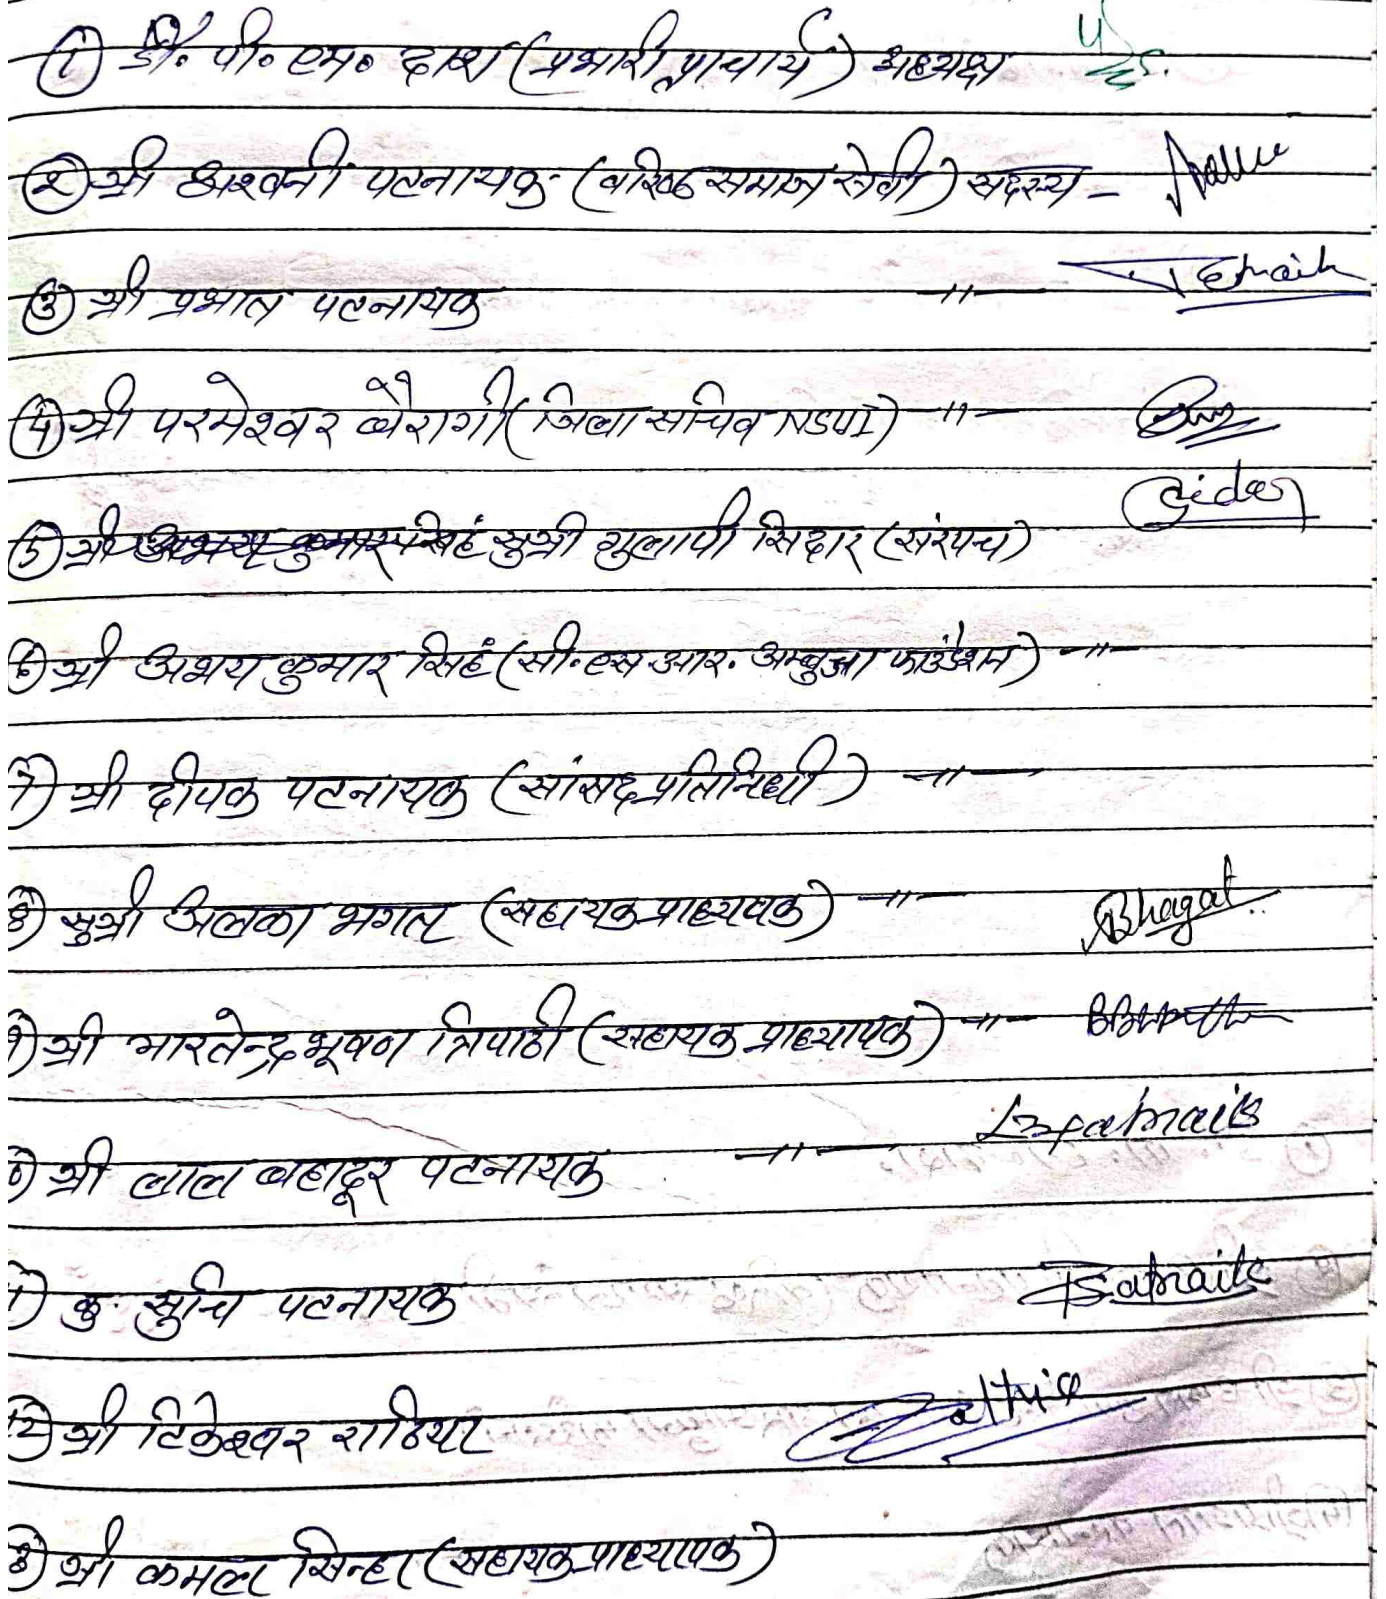 ① डॉ. पी. एम. दाश (प्रभारी प्राचार्य) अध्यक्ष
② श्री अश्वनी पटनायक (वरिष्ठ समाज सेवी) सदस्य -
③ श्री प्रभात पटनायक —"—
④ श्री परमेश्वर बैरागी (जिला सचिव NSUI) —"—
⑤ श्री अभय कुमार सिंह सुश्री गुलापी सिदार (संरपन्च) Sidar
⑥ श्री अभय कुमार सिहं (सी.एस.आर. अम्बुजा फाउंडेशन) —"—
7) श्री दीपक पटनायक (सांसद प्रतिनिधी) —"—
8) सुश्री अलका भगत (सहायक प्राध्यपक) —"— ABhagat
9) श्री भारतेन्द्र भूषण त्रिपाठी (सहायक प्राध्यापक) —"—
0) श्री लाल बहादूर पटनायक —"— LBpatnaik
1) कु. सुचि पटनायक Spatnaik
12) श्री टिकेश्वर राठिया Rathia
3) श्री कमला सिन्हा (सहायक प्राध्यापक)